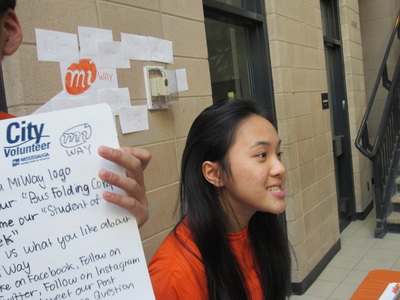 mi
WAY
City
Volunteer
MISSISSAUGA
mi
WAY
a MiWay logo
our "Bus Folding Con
me our "Student of
eek"
us what you like about
Way
ke on Facebook, Follow on
witter, Follow on Instagram
weet our Post
Question